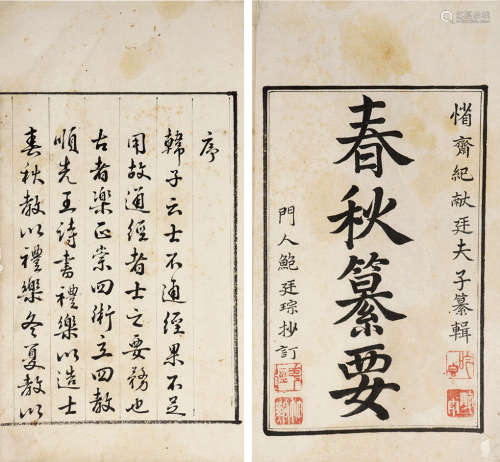 惜齋紀献廷夫子纂輯
春秋纂要
門人鮑廷琮抄訂
序
韓子云士不通經果不足
用故通經者士之要務也
古者樂正崇四術立四教
順先王詩書禮樂以造士
春秋教以禮樂冬夏教以